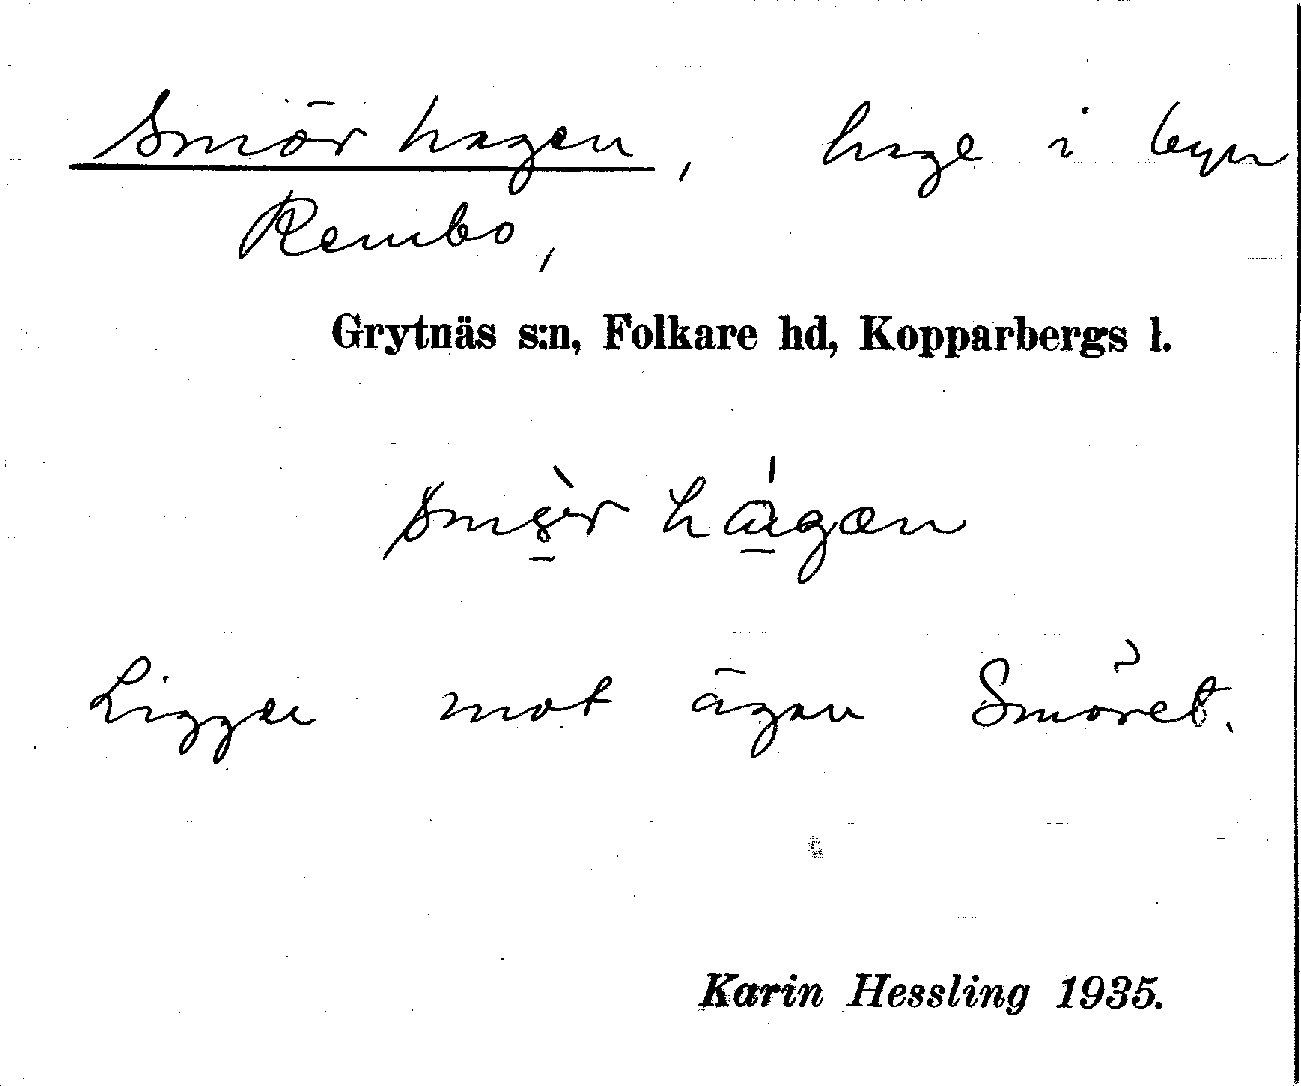 Smörhagen, hage i byn
Rembo,
Grytnäs s:n, Folkare hd, Kopparbergs l.
Ligger mot ägan Smöret.
Karin Hessling 1935.